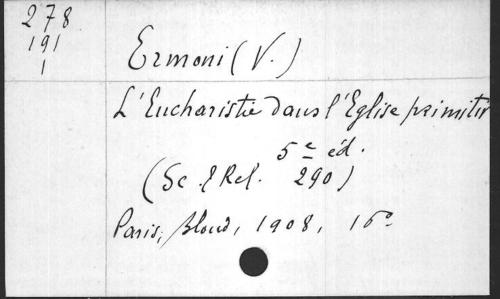 278
191
1
Ermoni (V.)
L'Eucharistie dans l'Eglise primitiv
5e éd.
(Sc. & Rel. 290)
Paris, Bloud, 1908, 16°